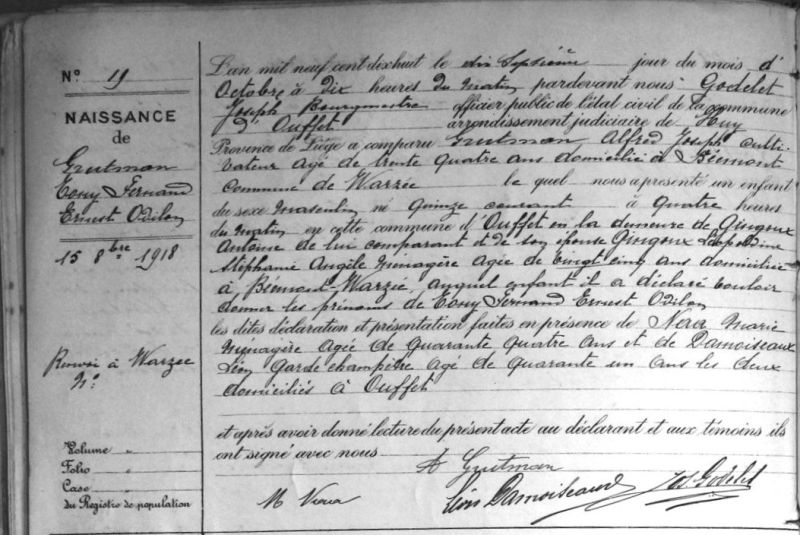 N° 19
NAISSANCE
de
Grutman
Tony Fernand
Ernest Odilon
15 8bre 1918
Renvoi à Warzee
N°
Volume "
Folio "
Case "
du Registre de population
L'an mil neuf cent dixhuit le dix septième jour du mois d'
Octobre à Dix heures du Matin pardevant nous Godelet
Joseph Bourgmestre officier public de l'état civil de la commune
d'Ouffet arrondissement judiciaire de Huy
Province de Liège a comparu Grutman, Alfred Joseph culti-
vateur âgé de trente quatre ans domicilié à Bémont
commune de Warzée le quel nous a présenté un enfant
du sexe masculin né quinze courant à quatre heures
du matin en cette commune d'Ouffet en la demeure de Gingoux
Antoine de lui comparant et de son épouse Gingoux Léopoldine
Stéphanie Angèle ménagère âgée de vingt cinq ans domiciliée
à Bémont-Warzée, auquel enfant il a déclaré vouloir
donner les prénoms de Tony Fernand Ernest Odilon
les dites déclaration et présentation faites en présence de Nera Marie
ménagère âgée de quarante quatre ans et de Damoiseaux
Léon Garde champêtre âgé de quarante un ans les deux
domiciliés à Ouffet
et après avoir donné lecture du présent acte au déclarant et aux témoins ils
ont signé avec nous
A Grutman
M Nera Léon Damoiseaux Jos. Godelet